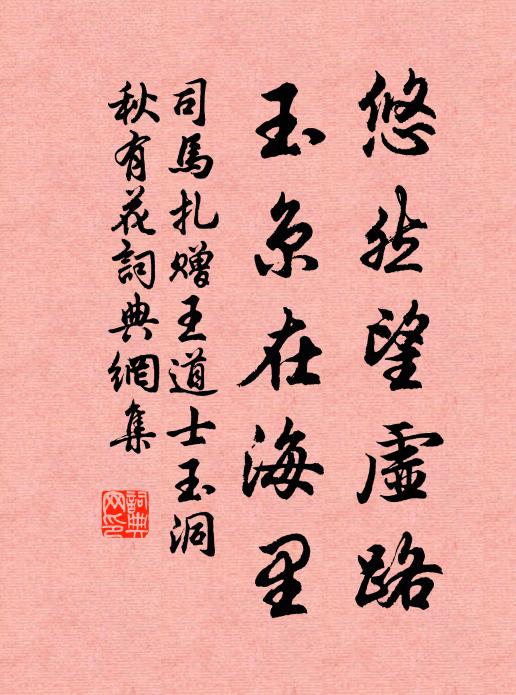 悠然望虛路
玉京在海里
司馬扎贈王道士玉洞
秋有花詞典網集
詞典
网印